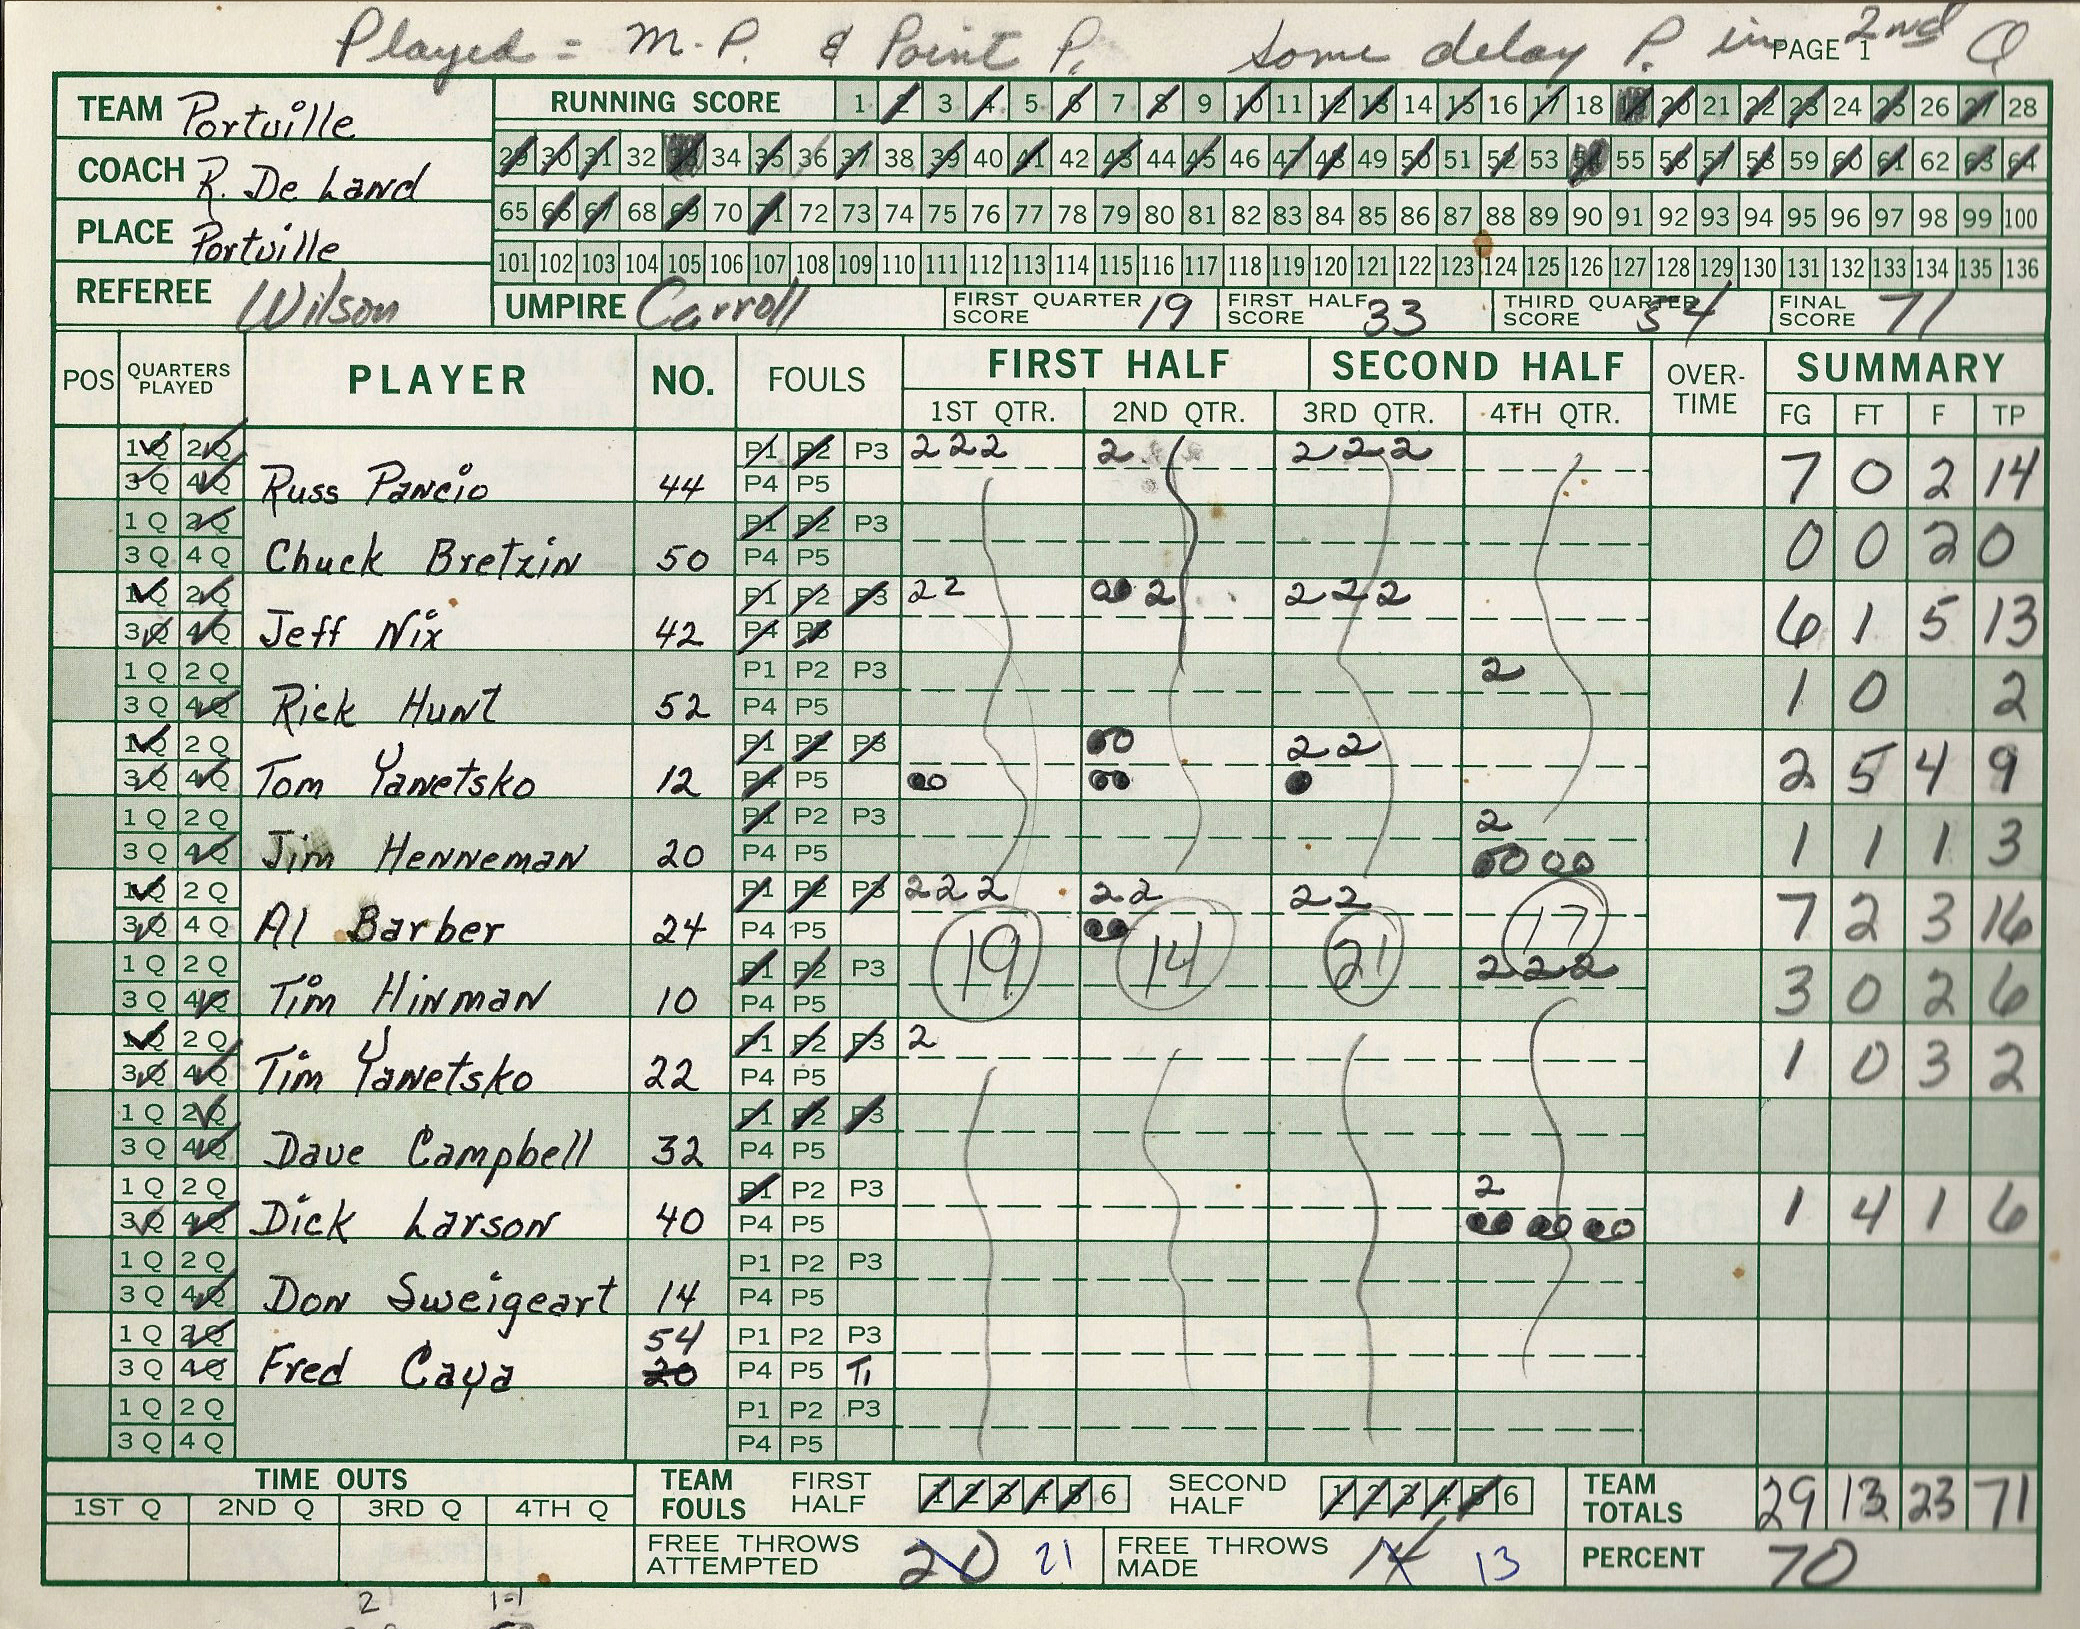 Played = M-P. & Point P. Some delay P. in 2nd Q
PAGE 1
TEAM Portville
RUNNING SCORE 1 2 3 4 5 6 7 8 9 10 11 12 13 14 15 16 17 18 19 20 21 22 23 24 25 26 27 28
29 30 31 32 33 34 35 36 37 38 39 40 41 42 43 44 45 46 47 48 49 50 51 52 53 54 55 56 57 58 59 60 61 62 63 64
COACH R. De Land
65 66 67 68 69 70 71 72 73 74 75 76 77 78 79 80 81 82 83 84 85 86 87 88 89 90 91 92 93 94 95 96 97 98 99 100
PLACE Portville
101 102 103 104 105 106 107 108 109 110 111 112 113 114 115 116 117 118 119 120 121 122 123 124 125 126 127 128 129 130 131 132 133 134 135 136
REFEREE Wilson
UMPIRE Carroll
FIRST QUARTER SCORE 19
FIRST HALF SCORE 33
THIRD QUARTER SCORE 54
FINAL SCORE 71
POS QUARTERS PLAYED PLAYER NO. FOULS FIRST HALF SECOND HALF OVER-TIME SUMMARY
1ST QTR. 2ND QTR. 3RD QTR. 4TH QTR. FG FT F TP
1Q 2Q P1 P2 P3 2 2 2 2 2 2 2
3Q 4Q Russ Pancio 44 P4 P5 7 0 2 14
1Q 2Q P1 P2 P3
3Q 4Q Chuck Bretzin 50 P4 P5 0 0 2 0
1Q 2Q P1 P2 P3 2 2 2 2 2 2
3Q 4Q Jeff Nix 42 P4 P5 6 1 5 13
1Q 2Q P1 P2 P3 2
3Q 4Q Rick Hunt 52 P4 P5 1 0 2
1Q 2Q P1 P2 P3 2 2
3Q 4Q Tom Yanetsko 12 P4 P5 2 5 4 9
1Q 2Q P1 P2 P3 2
3Q 4Q Jim Henneman 20 P4 P5 1 1 1 3
1Q 2Q P1 P2 P3 2 2 2 2 2 2 2
3Q 4Q Al Barber 24 P4 P5 7 2 3 16
19 14 21 17
1Q 2Q P1 P2 P3 2 2 2
3Q 4Q Tim Hinman 10 P4 P5 3 0 2 6
1Q 2Q P1 P2 P3 2
3Q 4Q Tim Yanetsko 22 P4 P5 1 0 3 2
1Q 2Q P1 P2 P3
3Q 4Q Dave Campbell 32 P4 P5
1Q 2Q P1 P2 P3 2
3Q 4Q Dick Larson 40 P4 P5 1 4 1 6
1Q 2Q P1 P2 P3
3Q 4Q Don Sweigeart 14 P4 P5
1Q 2Q 54 P1 P2 P3
3Q 4Q Fred Caya 20 P4 P5 T1
1Q 2Q P1 P2 P3
3Q 4Q P4 P5
TIME OUTS
1ST Q 2ND Q 3RD Q 4TH Q
TEAM FOULS FIRST HALF 1 2 3 4 5 6 SECOND HALF 1 2 3 4 5 6
TEAM TOTALS 29 13 23 71
FREE THROWS ATTEMPTED 20 21
FREE THROWS MADE 14 13
PERCENT 70